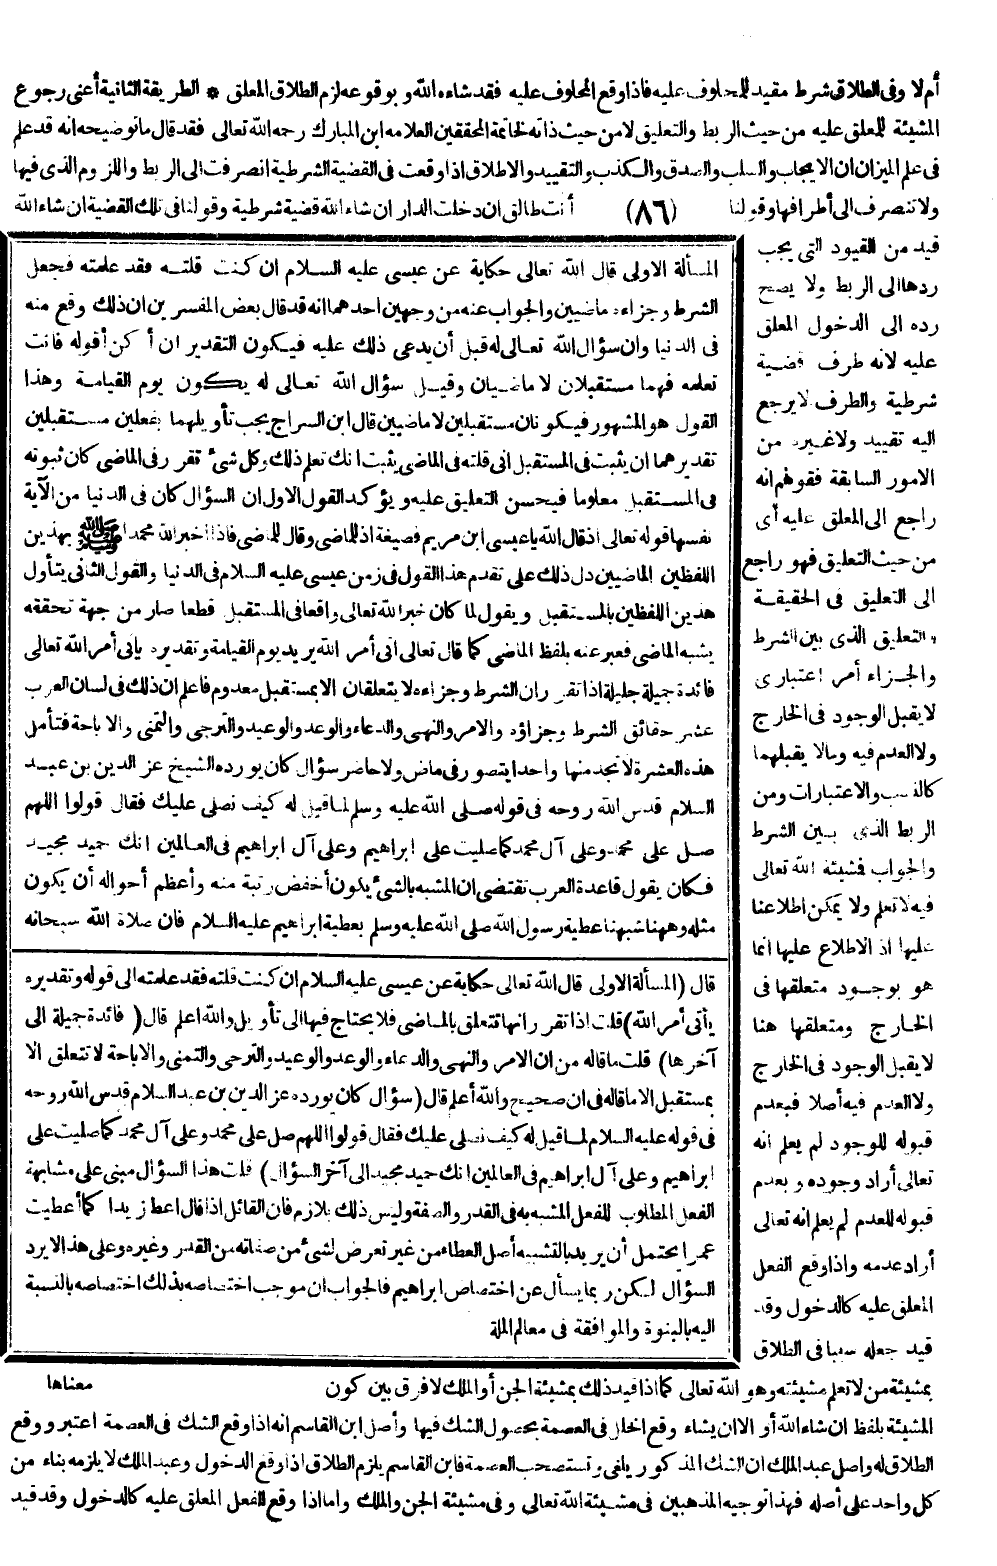 أم لا وفى الطلاق شرط مقيد للمحلوف عليه فاذا وقع المحلوف عليه فقد شاءه الله وبوقوعه لزم الطلاق المعلق * الطريقة الثانية أعنى رجوع
المشيئة للمعلق عليه من حيث الربط والتعليق لا من حيث ذاته لخاتمة المحققين العلامه ابن المبارك رحمه الله تعالى فقد قال ما توضيحه انه قد علم
فى علم الميزان ان الايجاب والسلب والصدق والكذب والتقييد والاطلاق اذا وقعت فى القضية الشرطية انصرفت الى الربط واللزوم الذى فيها
ولا تنصرف الى أطرافها وقولنا (٨٦) أنت طالق ان دخلت الدار ان شاء الله قضية شرطية وقولنا فى تلك القضية ان شاء الله
قيد من القيود التى يجب
ردها الى الربط ولا يصح
رده الى الدخول المعلق
عليه لانه طرف قضية
شرطية والطرف لا يرجع
اليه تقييد ولا غيره من
الامور السابقة فقولهم انه
راجع الى المعلق عليه أى
من حيث التعليق فهو راجع
الى التعليق فى الحقيقة
والتعليق الذى بين الشرط
والجزاء أمر اعتبارى
لا يقبل الوجود فى الخارج
ولا العدم فيه وما لا يقبلهما
كالنسب والاعتبارات ومن
الربط الذى بين الشرط
والجواب فشيئة الله تعالى
فيه لا تعلم ولا يمكن اطلاعنا
عليها اذ الاطلاع عليها انما
هو بوجود متعلقها فى
الخارج ومتعلقها هنا
لا يقبل الوجود فى الخارج
ولا العدم فيه أصلا فبعدم
قبوله للوجود لم يعلم انه
تعالى أراد وجوده وبعدم
قبوله للعدم لم يعلم انه تعالى
أراد عدمه واذا وقع الفعل
المعلق عليه كالدخول وقد
قيد جعله سببا فى الطلاق
المسألة الاولى قال الله تعالى حكاية عن عيسى عليه السلام ان كنت قلته فقد علمته فجعل
الشرط وجزاءه ماضيين والجواب عنه من وجهين احدهما انه قد قال بعض المفسرين ان ذلك وقع منه
فى الدنيا وان سؤال الله تعالى له قبل أن يدعى ذلك عليه فيكون التقدير ان أكن أقوله فانت
تعلمه فهما مستقبلان لا ماضيان وقيل سؤال الله تعالى له يكون يوم القيامة وهذا
القول هو المشهور فيكونان مستقبلين لا ماضيين قال ابن السراج يجب تأويلهما بفعلين مستقبلين
تقديرهما ان يثبت فى المستقبل انى قلته فى الماضى يثبت انك تعلم ذلك وكل شئ تقرر فى الماضى كان ثبوته
فى المستقبل معلوما فيحسن التعليق عليه ويؤكد القول الاول ان السؤال كان فى الدنيا من الآية
نفسها قوله تعالى اذ قال الله يا عيسى ابن مريم فصيغة اذ للماضى وقال للماضى فاذا اخبر الله محمدا ﷺ بهذين
اللفظين الماضيين دل ذلك على تقدم هذا القول فى زمن عيسى عليه السلام فى الدنيا والقول الثانى يتأول
هذين اللفظين بالمستقبل ويقول لما كان خبر الله تعالى واقعا فى المستقبل قطعا صار من جهة تحققه
يشبه الماضى فعبر عنه بلفظ الماضى كما قال تعالى اتى أمر الله يريد يوم القيامة وتقديره يأتى أمر الله تعالى
فائدة جميلة جليلة اذا تقرر ان الشرط وجزاءه لا يتعلقان الا بمستقبل معدوم فاعلم ان ذلك فى لسان العرب
عشر حقائق الشرط وجزاؤه والامر والنهى والدعاء والوعد والوعيد والترجى والتمنى والاباحة فتأمل
هذه العشرة لا تجد منها واحدا يتصور فى ماض ولا حاضر سؤال كان يورده الشيخ عز الدين بن عبد
السلام قدس الله روحه فى قوله صلى الله عليه وسلم لما قيل له كيف نصلى عليك فقال قولوا اللهم
صل على محمد وعلى آل محمد كما صليت على ابراهيم وعلى آل ابراهيم فى العالمين انك حميد مجيد
فكان يقول قاعدة العرب تقتضى ان المشبه بالشئ يكون أخفض رتبة منه وأعظم أحواله أن يكون
مثله وههنا شبهنا عطية رسول الله صلى الله عليه وسلم بعطية ابراهيم عليه السلام فان صلاة الله سبحانه
قال (المسألة الاولى قال الله تعالى حكاية عن عيسى عليه السلام ان كنت قلته فقد علمته الى قوله وتقديره
يأتى أمر الله) قلت اذا تقرر انها تتعلق بالماضى فلا يحتاج فيها الى تأويل والله اعلم قال (فائدة جميلة الى
آخرها) قلت ما قاله من ان الامر والنهى والدعاء والوعد والوعيد والترجى والتمنى والاباحة لا تتعلق الا
بمستقبل الا ما قاله فى ان صحيح والله أعلم قال (سؤال كان يورده عز الدين بن عبد السلام قدس الله روحه
فى قوله عليه السلام لما قيل له كيف نصلى عليك فقال قولوا اللهم صل على محمد وعلى آل محمد كما صليت على
ابراهيم وعلى آل ابراهيم فى العالمين انك حميد مجيد الى آخر السؤال) قلت هذا السؤال مبنى على مشابهة
الفعل المطلوب للفعل المشبه به فى القدر والصفة وليس ذلك بلازم فان القائل اذا قال اعط زيدا كما أعطيت
عمرا يحتمل أن يريد بالتشبيه أصل العطاء من غير تعرض لشئ من صفاته من القدر وغيره وعلى هذا لا يرد
السؤال لكن ربما يسأل عن اختصاص ابراهيم فالجواب ان موجب اختصاصه بذلك اختصاصه بالنسبة
اليه بالبنوة والموافقة فى معالم الملة
بمشيئة من لا تعلم مشيئته وهو الله تعالى كما اذا قيد ذلك بمشيئة الجن أو الملك لا فرق بين كون معناها
المشيئة بلفظ ان شاء الله أو الا ان يشاء وقع اخلال فى العصمة بحصول الشك فيها وأصل ابن القاسم انه اذا وقع الشك فى العصمة اعتبر ووقع
الطلاق له وأصل عبد الملك ان الشك المذكور يلغى وتستصحب العصمة فابن القاسم يلزم الطلاق اذا وقع الدخول وعبد الملك لا يلزمه بناء من
كل واحد على أصله فهذا توجيه المذهبين فى مشيئة الله تعالى وفى مشيئة الجن والملك واما اذا وقع الفعل المعلق عليه كالدخول وقد قيد